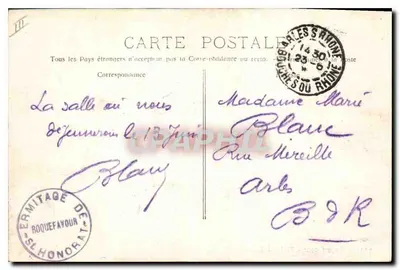 CARTE POSTALE
Tous les Pays étrangers n'acceptent pas la Correspondance au recto
Correspondance
ARLES S RHONE
14 30
23 - 6
BOUCHES DU RHONE
La salle où nous
déjeunerons le 18 Juin
Blanc
Madame Marie
Blanc
Rue Mireille
Arles
B d R
ERMITAGE DE
ROQUEFAVOUR
ST HONORAT